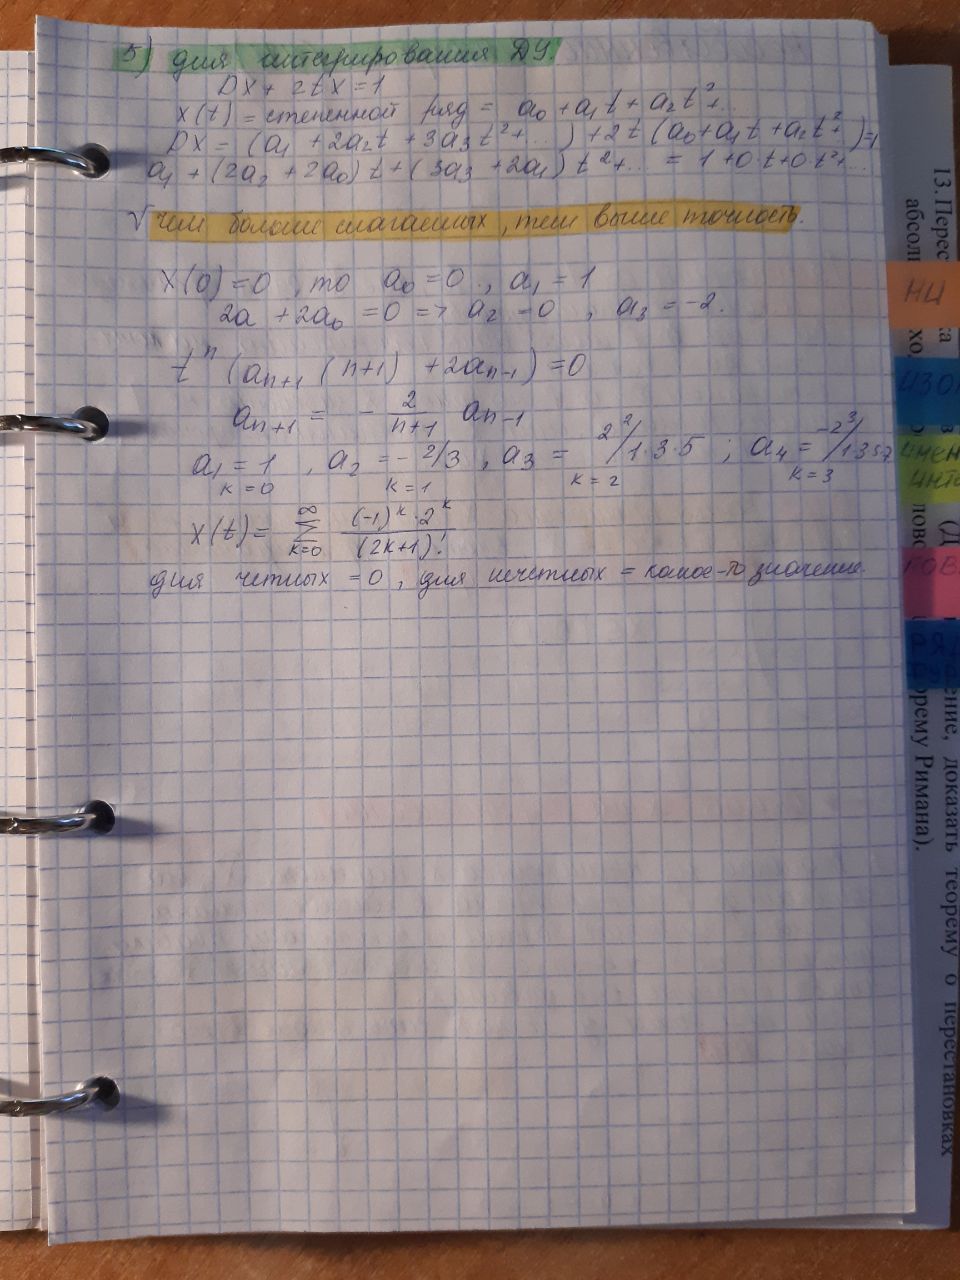 5) для интегрирования ДУ.
DX + 2tX = 1
X(t) = степенной ряд = a₀ + a₁t + a₂t² + ...
DX = (a₁ + 2a₂t + 3a₃t² + ...) + 2t (a₀ + a₁t + a₂t² + ) = 1
a₁ + (2a₂ + 2a₀)t + (3a₃ + 2a₁)t² + ... = 1 + 0·t + 0·t² + ...
√ чем больше слагаемых, тем выше точность.
X(0) = 0, то a₀ = 0, a₁ = 1
2a + 2a₀ = 0 => a₂ = 0, a₃ = -2.
tⁿ (aₙ₊₁ (n+1) + 2aₙ₋₁) = 0
aₙ₊₁ = - 2/(n+1) aₙ₋₁
a₁ = 1, a₂ = - 2/3, a₃ = 2²/1·3·5 ; a₄ = -2³/1·3·5·7
k = 0 k = 1 k = 2 k = 3
X(t) = ∑ₖ₌₀^∞ (-1)ᵏ·2ᵏ / (2k+1)!
для четных = 0, для нечетных = какое-то значение.
13. Перес
абсол
ни
изо
имен
инто
(Д
гов
ение, доказать теорему о перестановках
орему Римана).